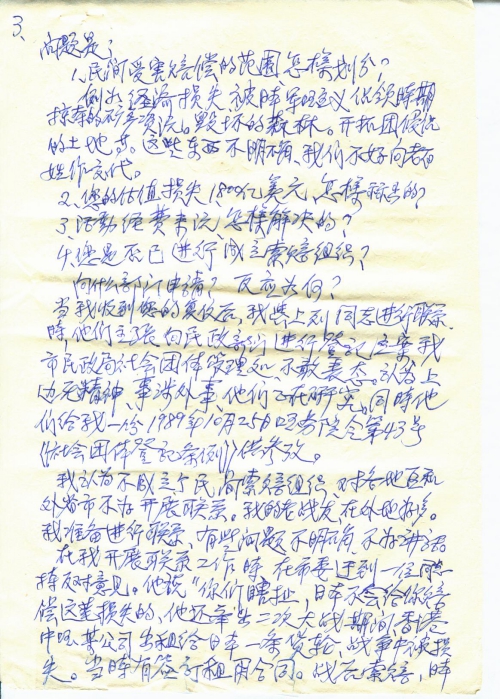 3、
问题是:
1、民间受害赔偿的范围怎样划分?
例如经济损失被降军国主义占领时期
掠夺的矿产资源。毁坏的森林。开拓团侵占
的土地等。这些东西不明确,我们不好向老百
姓作交代。
2、您的估值损失1800亿美元,怎样标出的?
3、活动经费来源怎样解决的?
4、您是否已进行成立索赔组织?
向什么部门申请?反应如何?
当我收到您的复信后,我与上列同志进行联系
时,他们主张向民政部门进行登记立案,我
市民政局社会团体管理处,不敢表态。认为上
边无精神、事涉外事,他们正在研究。同时他
们给我一份1989年10月25日国务院令第43号
《社会团体登记条例》供参考。
我认为不成立个民间索赔组织,对各地区和
外省市不好开展联系。我的老战友在外地很多。
我准备进行联系,有些问题不明确,不好讲话
在我开展联系工作时,在市委遇到一位同志
持反对意见。他说"你们瞎扯,日本不会给你赔
偿这些损失的,他还举出二次大战期间香港
中国某公司出租给日本一条货轮,战争中被损
失。当时有签订租用合同。战后索赔,时